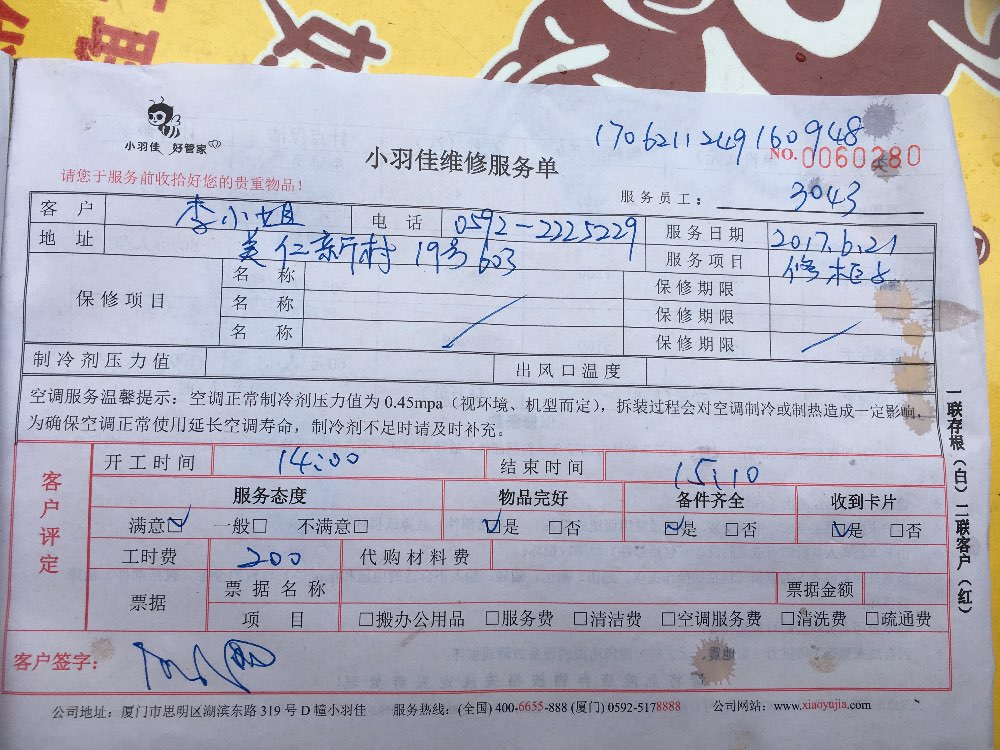 小羽佳 好管家
1706211249160948
小羽佳维修服务单
NO.0060280
请您于服务前收拾好您的贵重物品！
服务员工： 3043
客户 李小姐 电话 0592-2225229 服务日期 2017.6.21
地址 美仁新村 19号603 服务项目 修柜子
保修项目 名称 保修期限
名称 保修期限
名称 保修期限
制冷剂压力值 出风口温度
空调服务温馨提示：空调正常制冷剂压力值为 0.45mpa（视环境、机型而定），拆装过程会对空调制冷或制热造成一定影响，
为确保空调正常使用延长空调寿命，制冷剂不足时请及时补充。
客户评定
开工时间 14:00 结束时间 15:10
服务态度 物品完好 备件齐全 收到卡片
满意☑ 一般□ 不满意□ ☑是 □否 ☑是 □否 ☑是 □否
工时费 200 代购材料费
票据 票据名称 票据金额
项目 □搬办公用品 □服务费 □清洁费 □空调服务费 □清洗费 □疏通费
客户签字：
公司地址：厦门市思明区湖滨东路 319 号 D 幢小羽佳 服务热线：(全国) 400-6655-888 (厦门) 0592-5178888 公司网站：www.xiaoyujia.com
一联存根（白）二联客户（红）